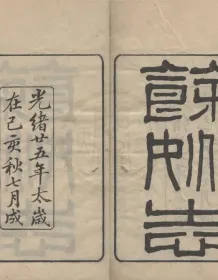 餘姚志
光緒廿五年太歲
在己亥秋七月成